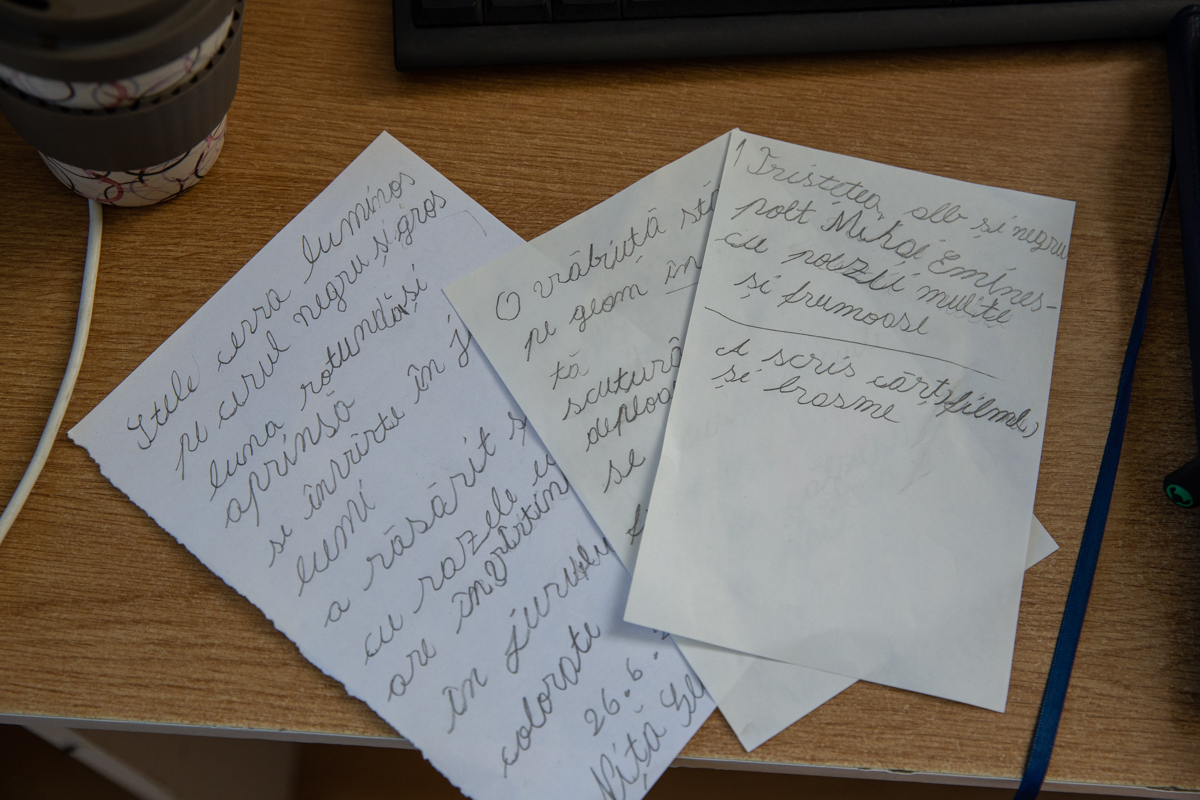 Stele cerra luminos
pe cerul negru și gros
luna rotundă și
aprinsă
se învîrte în
lumi
a răsărit
cu razele
are
în jurul
colorate
26.6.
Niță
O vrăbiuță stă
pe geam în
tă
scutură
deploa
se
1 Tristetea, alb și negru
polt Mihai Emines-
cu poezii multe
și frumoase
A scris cărți, filme,
și brasme